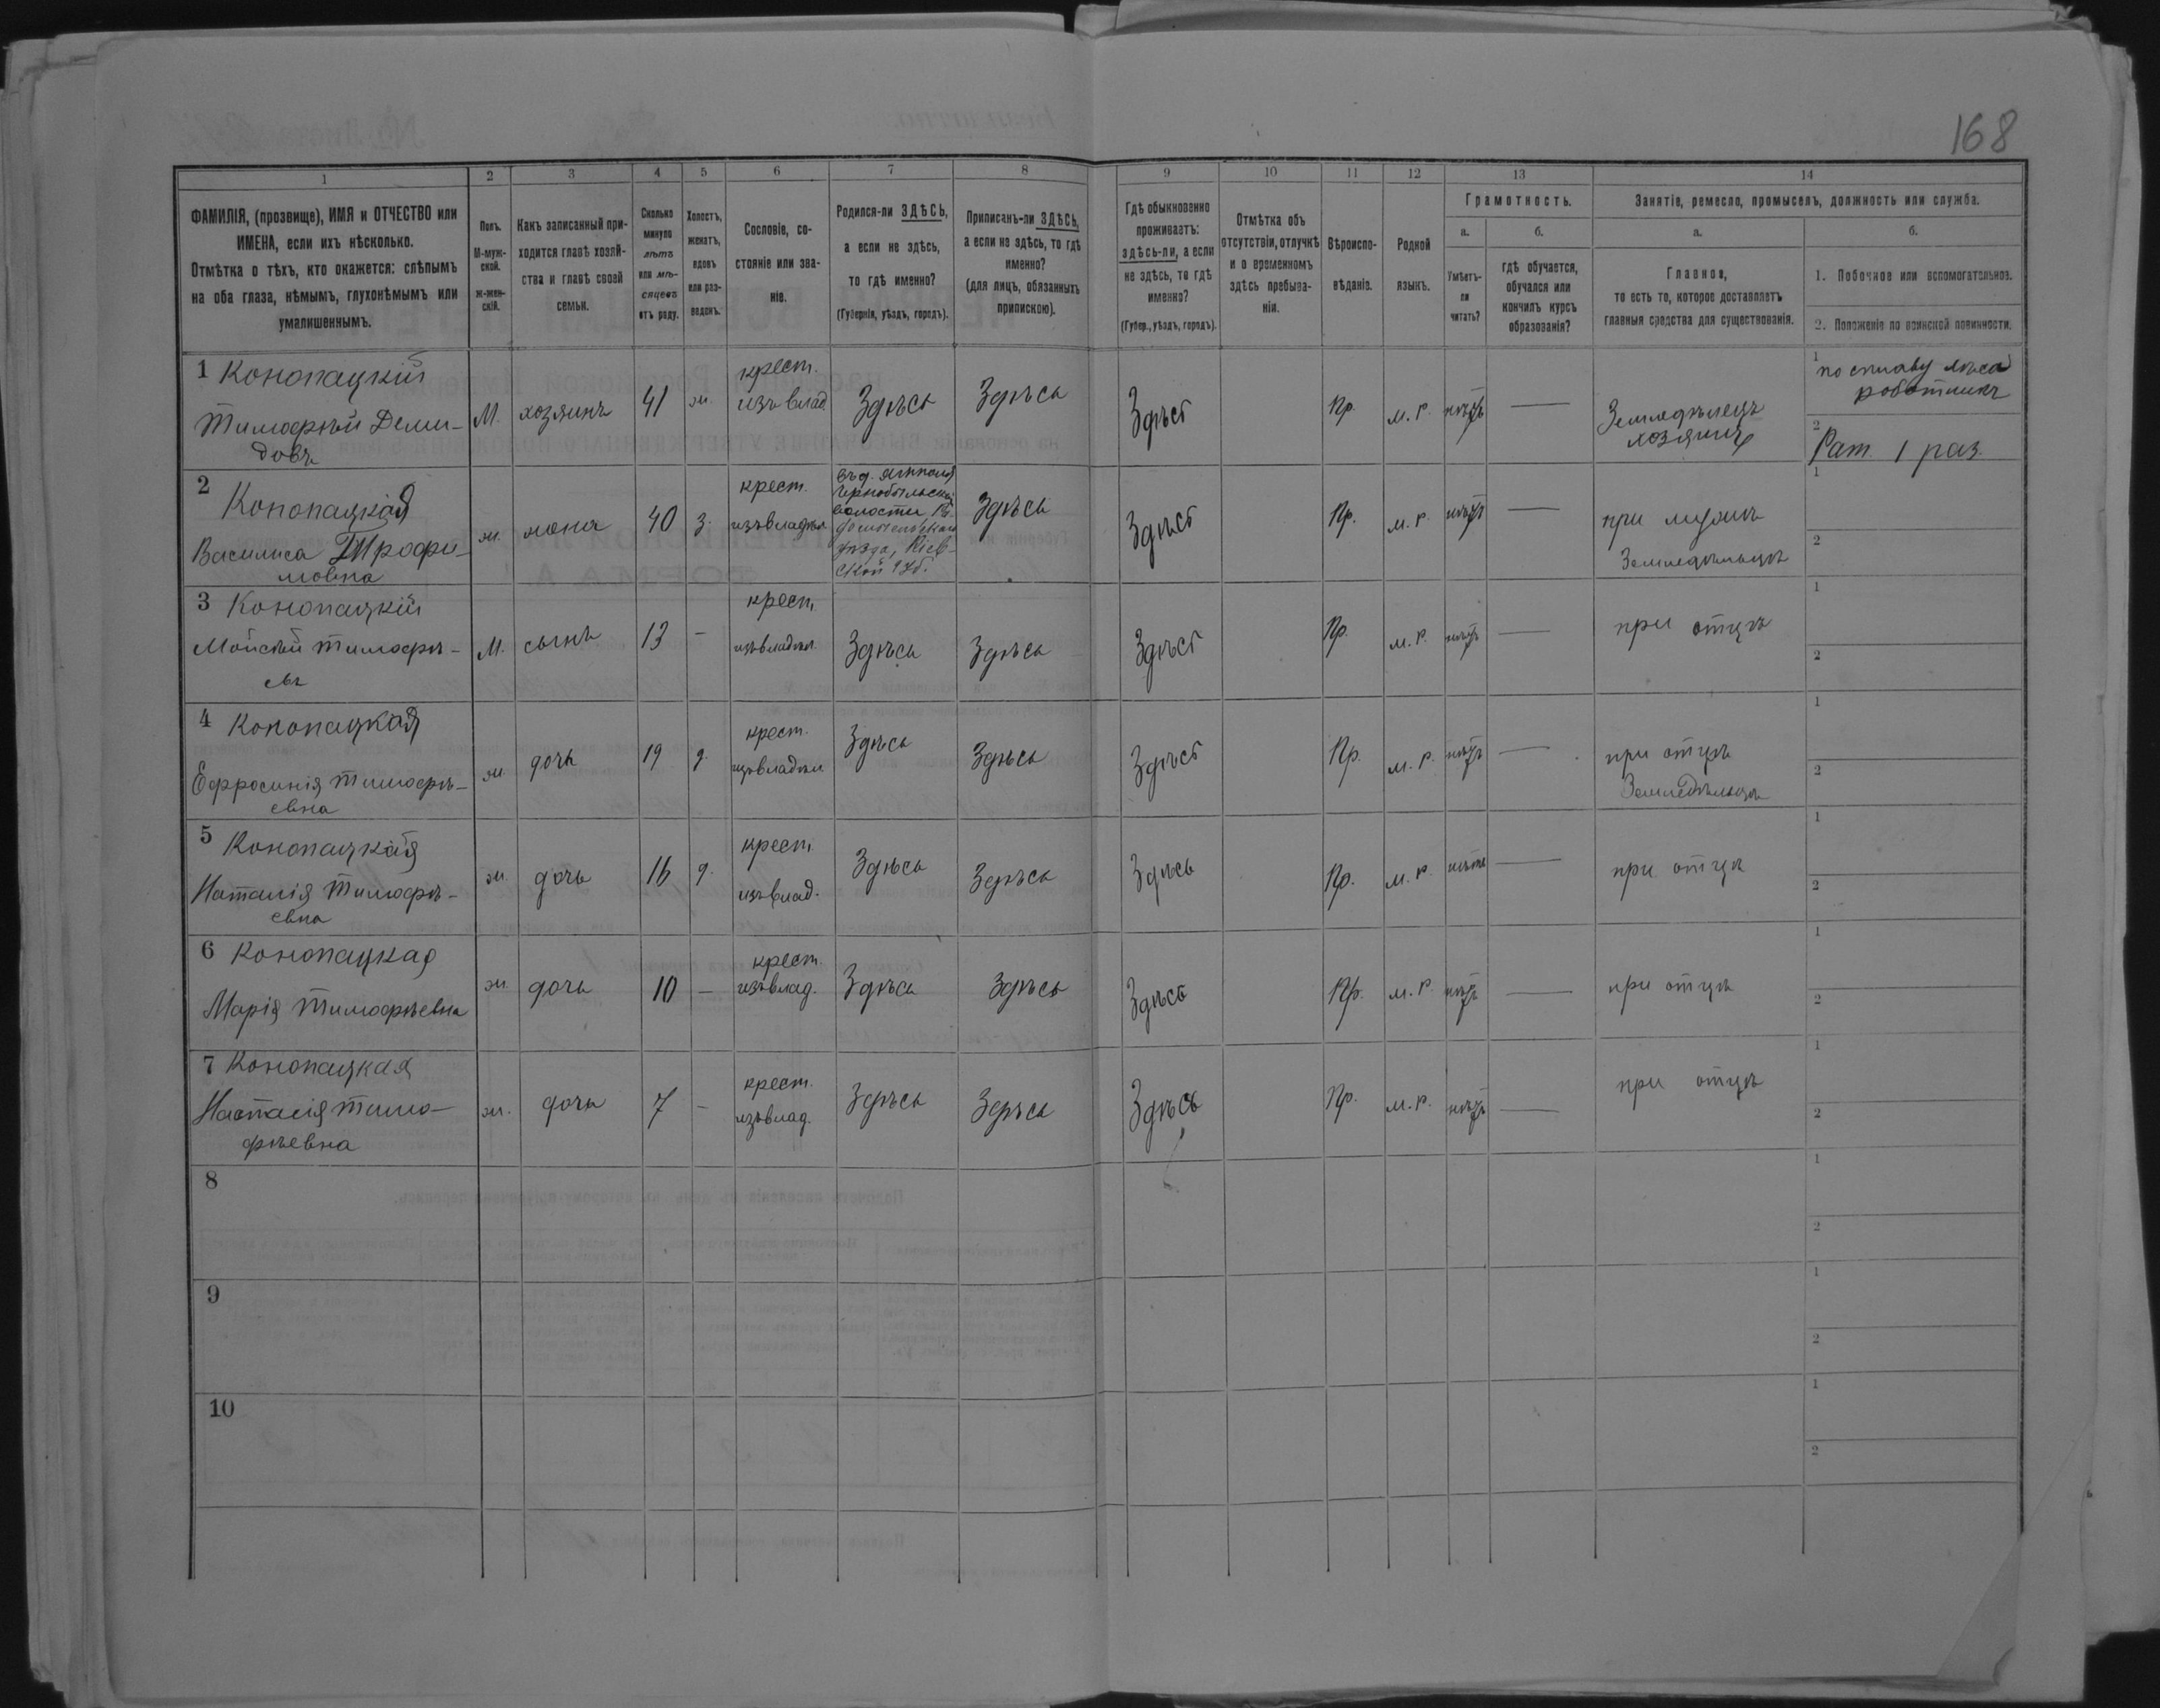 168
1
2
3
4
5
6
7
8
9
10
11
12
13
14
ФАМИЛІЯ, (прозвище), ИМЯ и ОТЧЕСТВО или
ИМЕНА, если ихъ нѣсколько.
Отмѣтка о тѣхъ, кто окажется: слѣпымъ
на оба глаза, нѣмымъ, глухонѣмымъ или
умалишеннымъ.
Полъ.
М-муж-
ской.
ж-жен-
скій.
Какъ записанный при-
ходится главѣ хозяй-
ства и главѣ своей
семьи.
Сколько
минуло
лѣтъ
или мѣ-
сяцевъ
отъ роду.
Холостъ,
женатъ,
вдовъ
или раз-
веденъ.
Сословіе, со-
стояніе или зва-
ніе.
Родился-ли ЗДѢСЬ,
а если не здѣсь,
то гдѣ именно?
(Губернія, уѣздъ, городъ).
Приписанъ-ли ЗДѢСЬ,
а если не здѣсь, то гдѣ
именно?
(для лицъ, обязанныхъ
припискою).
Гдѣ обыкновенно
проживаетъ:
здѣсь-ли, а если
не здѣсь, то гдѣ
именно?
(Губер., уѣздъ, городъ).
Отмѣтка объ
отсутствіи, отлучкѣ
и о временномъ
здѣсь пребыва-
ніи.
Вѣроиспо-
вѣданіе.
Родной
языкъ.
Грамотность.
а.
Умѣетъ-
ли
читать?
б.
гдѣ обучается,
обучался или
кончилъ курсъ
образованія?
Занятіе, ремесло, промыселъ, должность или служба.
а.
Главное,
то есть то, которое доставляетъ
главныя средства для существованія.
б.
1. Побочное или вспомогательное.
2. Положеніе по воинской повинности.
1 Конопацкій
Тимофѣй Деми-
довъ
М. хозяинъ 41 ж. крест.
изъ влад. Здѣсь Здѣсь Здѣсь Пр. м. р. нѣтъ — Земледѣлецъ
хозяинъ
1 по сплаву лѣса
работникъ
2 Рат. 1 раз.
2 Конопацкая
Василиса Трофи-
мовна
ж. жена 40 з. крест.
изъ владѣл.
Чернобыльской
волости Ра-
домысльскаго
уѣзда, Кіев-
ской губ.
Здѣсь Здѣсь Пр. м. р. нѣтъ — при мужѣ
Земледѣльцѣ
1
2
3 Конопацкій
Мойсѣй Тимофѣ-
евъ
М. сынъ 13 — крест.
изъ владѣл. Здѣсь Здѣсь Здѣсь Пр. м. р. нѣтъ — при отцѣ
1
2
4 Конопацкая
Ефросинія Тимофѣ-
евна
ж. дочь 19 д. крест.
изъ владѣл. Здѣсь Здѣсь Здѣсь Пр. м. р. нѣтъ — при отцѣ
Земледѣльцѣ
1
2
5 Конопацкая
Наталія Тимофѣ-
евна
ж. дочь 16 д. крест.
изъ влад. Здѣсь Здѣсь Здѣсь Пр. м. р. нѣтъ — при отцѣ
1
2
6 Конопацкая
Марія Тимофѣевна
ж. дочь 10 — крест.
изъ влад. Здѣсь Здѣсь Здѣсь Пр. м. р. нѣтъ — при отцѣ
1
2
7 Конопацкая
Настасія Тимо-
фѣевна
ж. дочь 7 — крест.
изъ влад. Здѣсь Здѣсь Здѣсь Пр. м. р. нѣтъ — при отцѣ
1
2
8
1
2
9
1
2
10
1
2